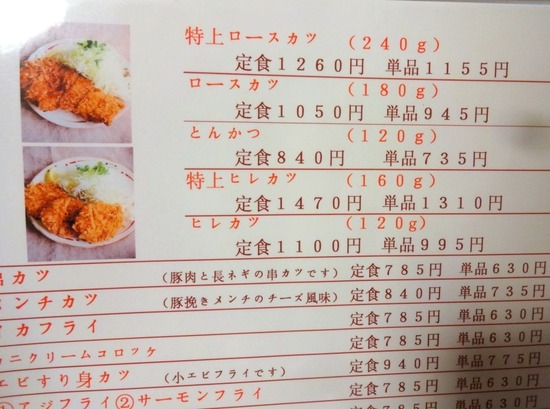 特上ロースカツ （240g）
定食1260円 単品1155円
ロースカツ （180g）
定食1050円 単品945円
とんかつ （120g）
定食840円 単品735円
特上ヒレカツ （160g）
定食1470円 単品1310円
ヒレカツ （120g）
定食1100円 単品995円
串カツ （豚肉と長ネギの串カツです） 定食785円 単品630円
メンチカツ （豚挽きメンチのチーズ風味） 定食840円 単品735円
イカフライ 定食785円 単品630円
カニクリームコロッケ 定食785円 単品630円
エビすり身カツ （小エビフライです） 定食940円 単品775円
①アジフライ②サーモンフライ 定食785円 単品630円
定食785円 単品630円